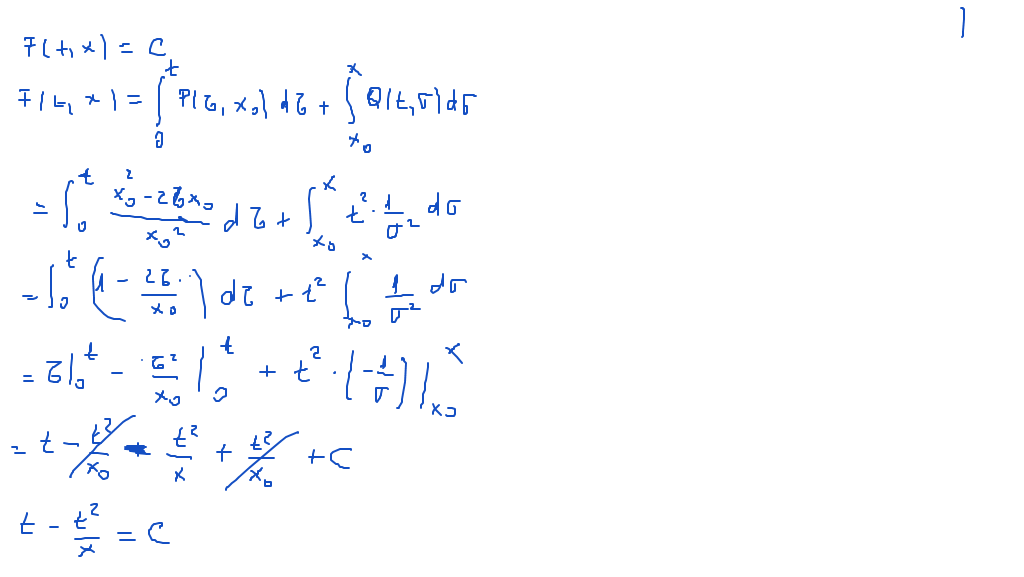 F(t, x) = C
F(t, x) = ∫_0^t P(τ, x_0) dτ + ∫_{x_0}^x Q(t, σ) dσ
= ∫_0^t (x_0^2 - 2τx_0)/(x_0^2) dτ + ∫_{x_0}^x t^2 · 1/σ^2 dσ
= ∫_0^t (1 - 2τ/x_0) dτ + t^2 ∫_{x_0}^x 1/σ^2 dσ
= τ|_0^t - τ^2/x_0 |_0^t + t^2 · (-1/σ)|_{x_0}^x
= t - t^2/x_0 - t^2/x + t^2/x_0 + C
t - t^2/x = C